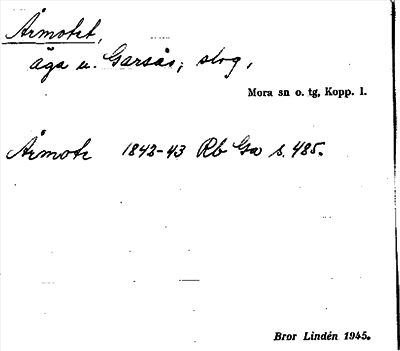 Årmotet,
äga u. Garsås, slog,
Mora sn o. tg, Kopp. l.
Årmote 1842-43 Rb Ga s. 485.
Bror Lindén 1945.